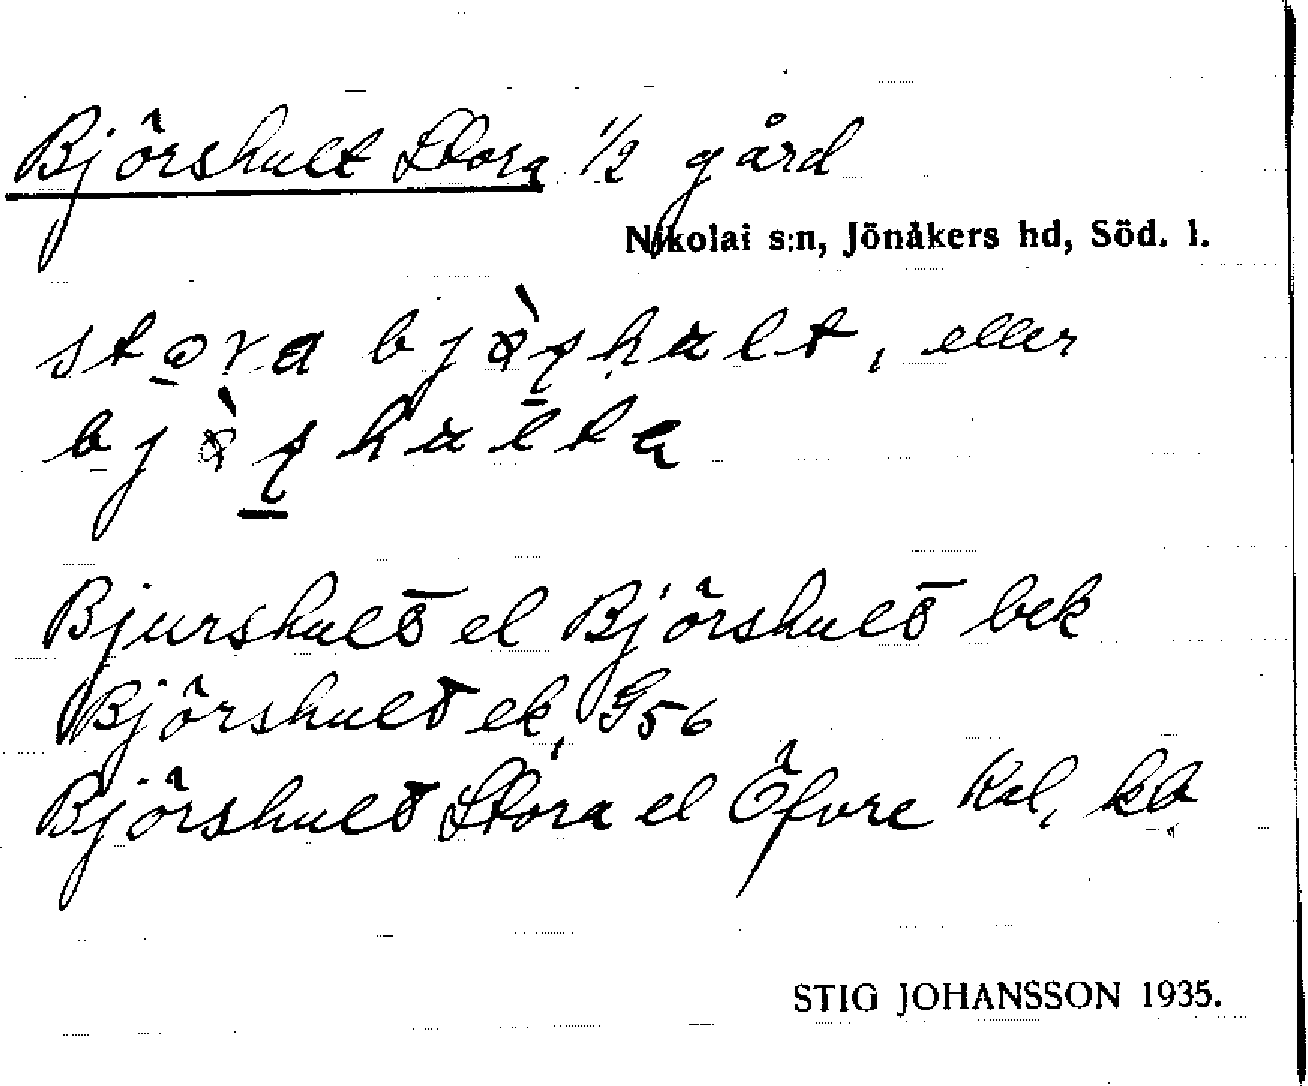 Björshult Stora 1/2 gård
Nikolai s:n, Jönåkers hd, Söd. l.
stora bjö̀ʂhult, eller
bjö̀ʂhulta
Bjurshult el Björshult bek
Björshult ek, G56
Björshult Stora el Öfvre Rel, kb
STIG JOHANSSON 1935.